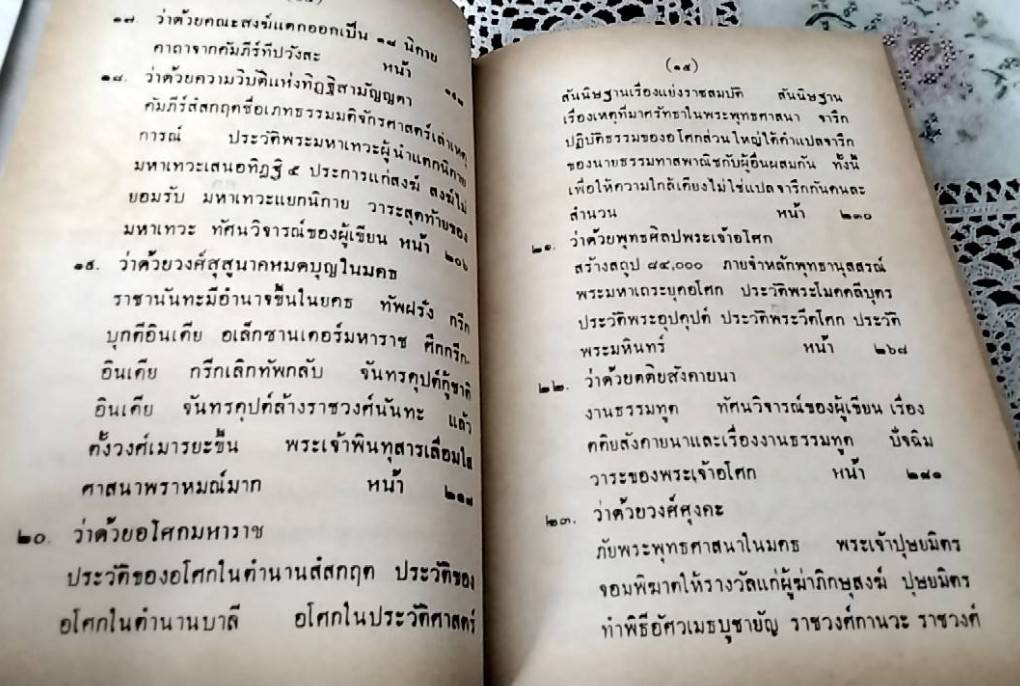 ๑๗. ว่าด้วยคณะสงฆ์แตกออกเป็น ๑๘ นิกาย
คาถาจากคัมภีร์ทีปวังสะ หน้า
๑๘. ว่าด้วยความวิบัติแห่งทิฏฐิสามัญญตา
คัมภีร์สํสกฤตชื่อเภทธรรมมติจักรศาสตร์เล่าเหตุ
การณ์ ประวัติพระมหาเทวะผู้นำแตกนิกาย
มหาเทวะเสนอทิฏฐิ ๕ ประการแก่สงฆ์ สงฆ์ไม่
ยอมรับ มหาเทวะแยกนิกาย วาระสุดท้ายของ
มหาเทวะ ทัศนวิจารณ์ของผู้เขียน หน้า ๒๐๖
๑๙. ว่าด้วยวงศ์สุสูนาคหมดบุญในมคธ
ราชานันทะมีอำนาจขึ้นในมคธ ทัพฝรั่ง กรีก
บุกตีอินเดีย อเล็กซานเดอร์มหาราช ศึกกรีก-
อินเดีย กรีกเลิกทัพกลับ จันทรคุปต์กู้ชาติ
อินเดีย จันทรคุปต์ล้างราชวงศ์นันทะ แล้ว
ตั้งวงศ์เมารยะขึ้น พระเจ้าพินทุสารเลื่อมใส
ศาสนาพราหมณ์มาก หน้า ๒๑๘
๒๐. ว่าด้วยอโศกมหาราช
ประวัติของอโศกในตำนานสํสกฤต ประวัติของ
อโศกในตำนานบาลี อโศกในประวัติศาสตร์
(๑๕)
สันนิษฐานเรื่องแย่งราชสมบัติ สันนิษฐาน
เรื่องเหตุที่มาศรัทธาในพระพุทธศาสนา จารึก
ปฏิบัติธรรมของอโศกส่วนใหญ่ใต้คำแปลจารึก
ของนายธรรมทาสพาณิชกับผู้อื่นผสมกัน ทั้งนี้
เพื่อให้ความใกล้เคียงไม่ใช่แปลจารึกกันคนละ
สำนวน หน้า ๒๓๐
๒๑. ว่าด้วยพุทธศิลปพระเจ้าอโศก
สร้างสถูป ๘๔,๐๐๐ ภายจำหลักพุทธานุสสรณ์
พระมหาเถระยุคอโศก ประวัติพระโมคคลีบุตร
ประวัติพระอุปคุปต์ ประวัติพระวีตโศก ประวัติ
พระมหินทร์ หน้า ๒๖๘
๒๒. ว่าด้วยตติยสังคายนา
งานธรรมทูต ทัศนวิจารณ์ของผู้เขียน เรื่อง
ตติยสังคายนาและเรื่องงานธรรมทูต ปัจฉิม
วาระของพระเจ้าอโศก หน้า ๒๙๑
๒๓. ว่าด้วยวงศ์ศุงคะ
ภัยพระพุทธศาสนาในมคธ พระเจ้าปุษยมิตร
จอมพิฆาตให้รางวัลแก่ผู้ฆ่าภิกษุสงฆ์ ปุษยมิตร
ทำพิธีอัศวเมธบุชายัญ ราชวงศ์กานวะ ราชวงศ์